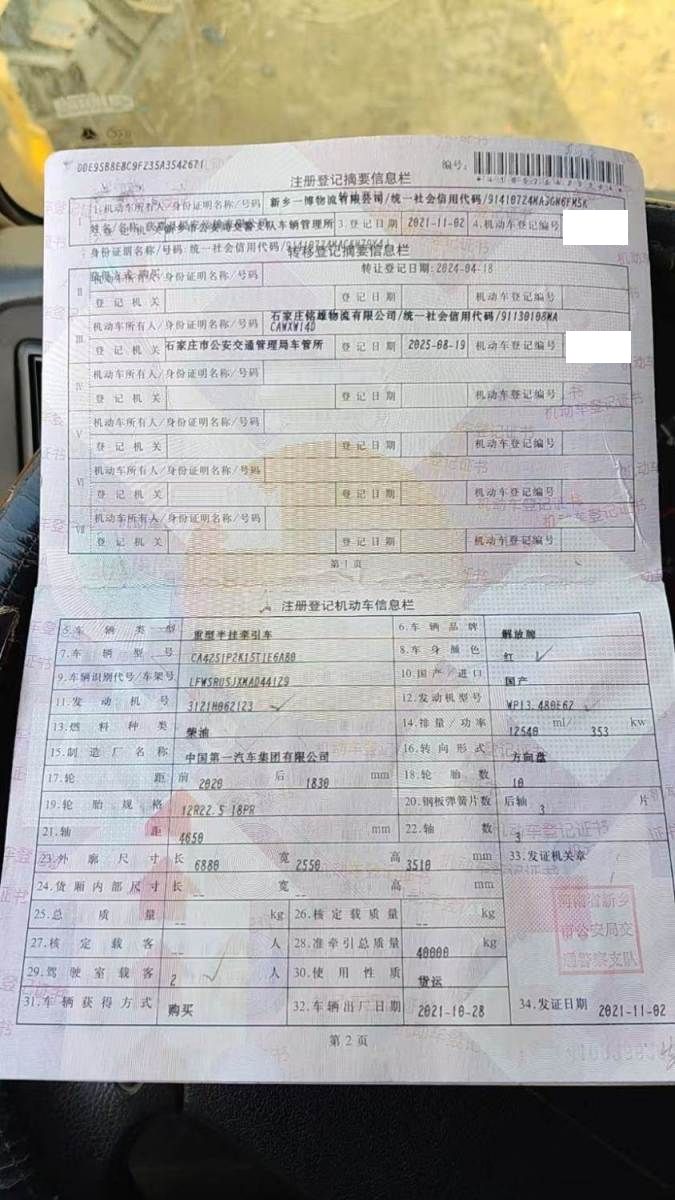 DDE95B8E8C9F235A3542671
编号:
注册登记摘要信息栏
I 1.机动车所有人/身份证明名称/号码 新乡一博物流有限公司/统一社会信用代码/91410724MA3GN6FM5K
3.登记日期 2021-11-02 4.机动车登记编号
转移登记摘要信息栏
转让登记日期:2024-04-18
II 机动车所有人/身份证明名称/号码
登记机关 登记日期 机动车登记编号
III 机动车所有人/身份证明名称/号码 石家庄铭雄物流有限公司/统一社会信用代码/91130108MA
CAWXW14D
登记机关 石家庄市公安交通管理局车管所 登记日期 2025-08-19 机动车登记编号
IV 机动车所有人/身份证明名称/号码
登记机关 登记日期 机动车登记编号
V 机动车所有人/身份证明名称/号码
登记机关 登记日期 机动车登记编号
VI 机动车所有人/身份证明名称/号码
登记机关 登记日期 机动车登记编号
VII 机动车所有人/身份证明名称/号码
登记机关 登记日期 机动车登记编号
第1页
注册登记机动车信息栏
5.车辆类型 重型半挂牵引车 6.车辆品牌 解放牌
7.车辆型号 CA4251P2K15T1E6A80 8.车身颜色 红
9.车辆识别代号/车架号 LFWSRU5JXMAD44129 10.国产/进口 国产
11.发动机号 3121H062123 12.发动机型号 WP13.480E62
13.燃料种类 柴油 14.排量/功率 12540 ml/ 353 kw
15.制造厂名称 中国第一汽车集团有限公司 16.转向形式 方向盘
17.轮距 前 2020 后 1830 mm 18.轮胎数 10
19.轮胎规格 12R22.5 18PR 20.钢板弹簧片数 后轴 3 片
21.轴距 4650 mm 22.轴数 3
23.外廓尺寸 长 6880 宽 2550 高 3510 mm 33.发证机关章
24.货厢内部尺寸 长 -- 宽 -- 高 -- mm
河南省新乡
市公安局交
通警察支队
25.总质量 -- kg 26.核定载质量 -- kg
27.核定载客 -- 人 28.准牵引总质量 40000 kg
29.驾驶室载客 2 人 30.使用性质 货运
31.车辆获得方式 购买 32.车辆出厂日期 2021-10-28 34.发证日期 2021-11-02
第2页